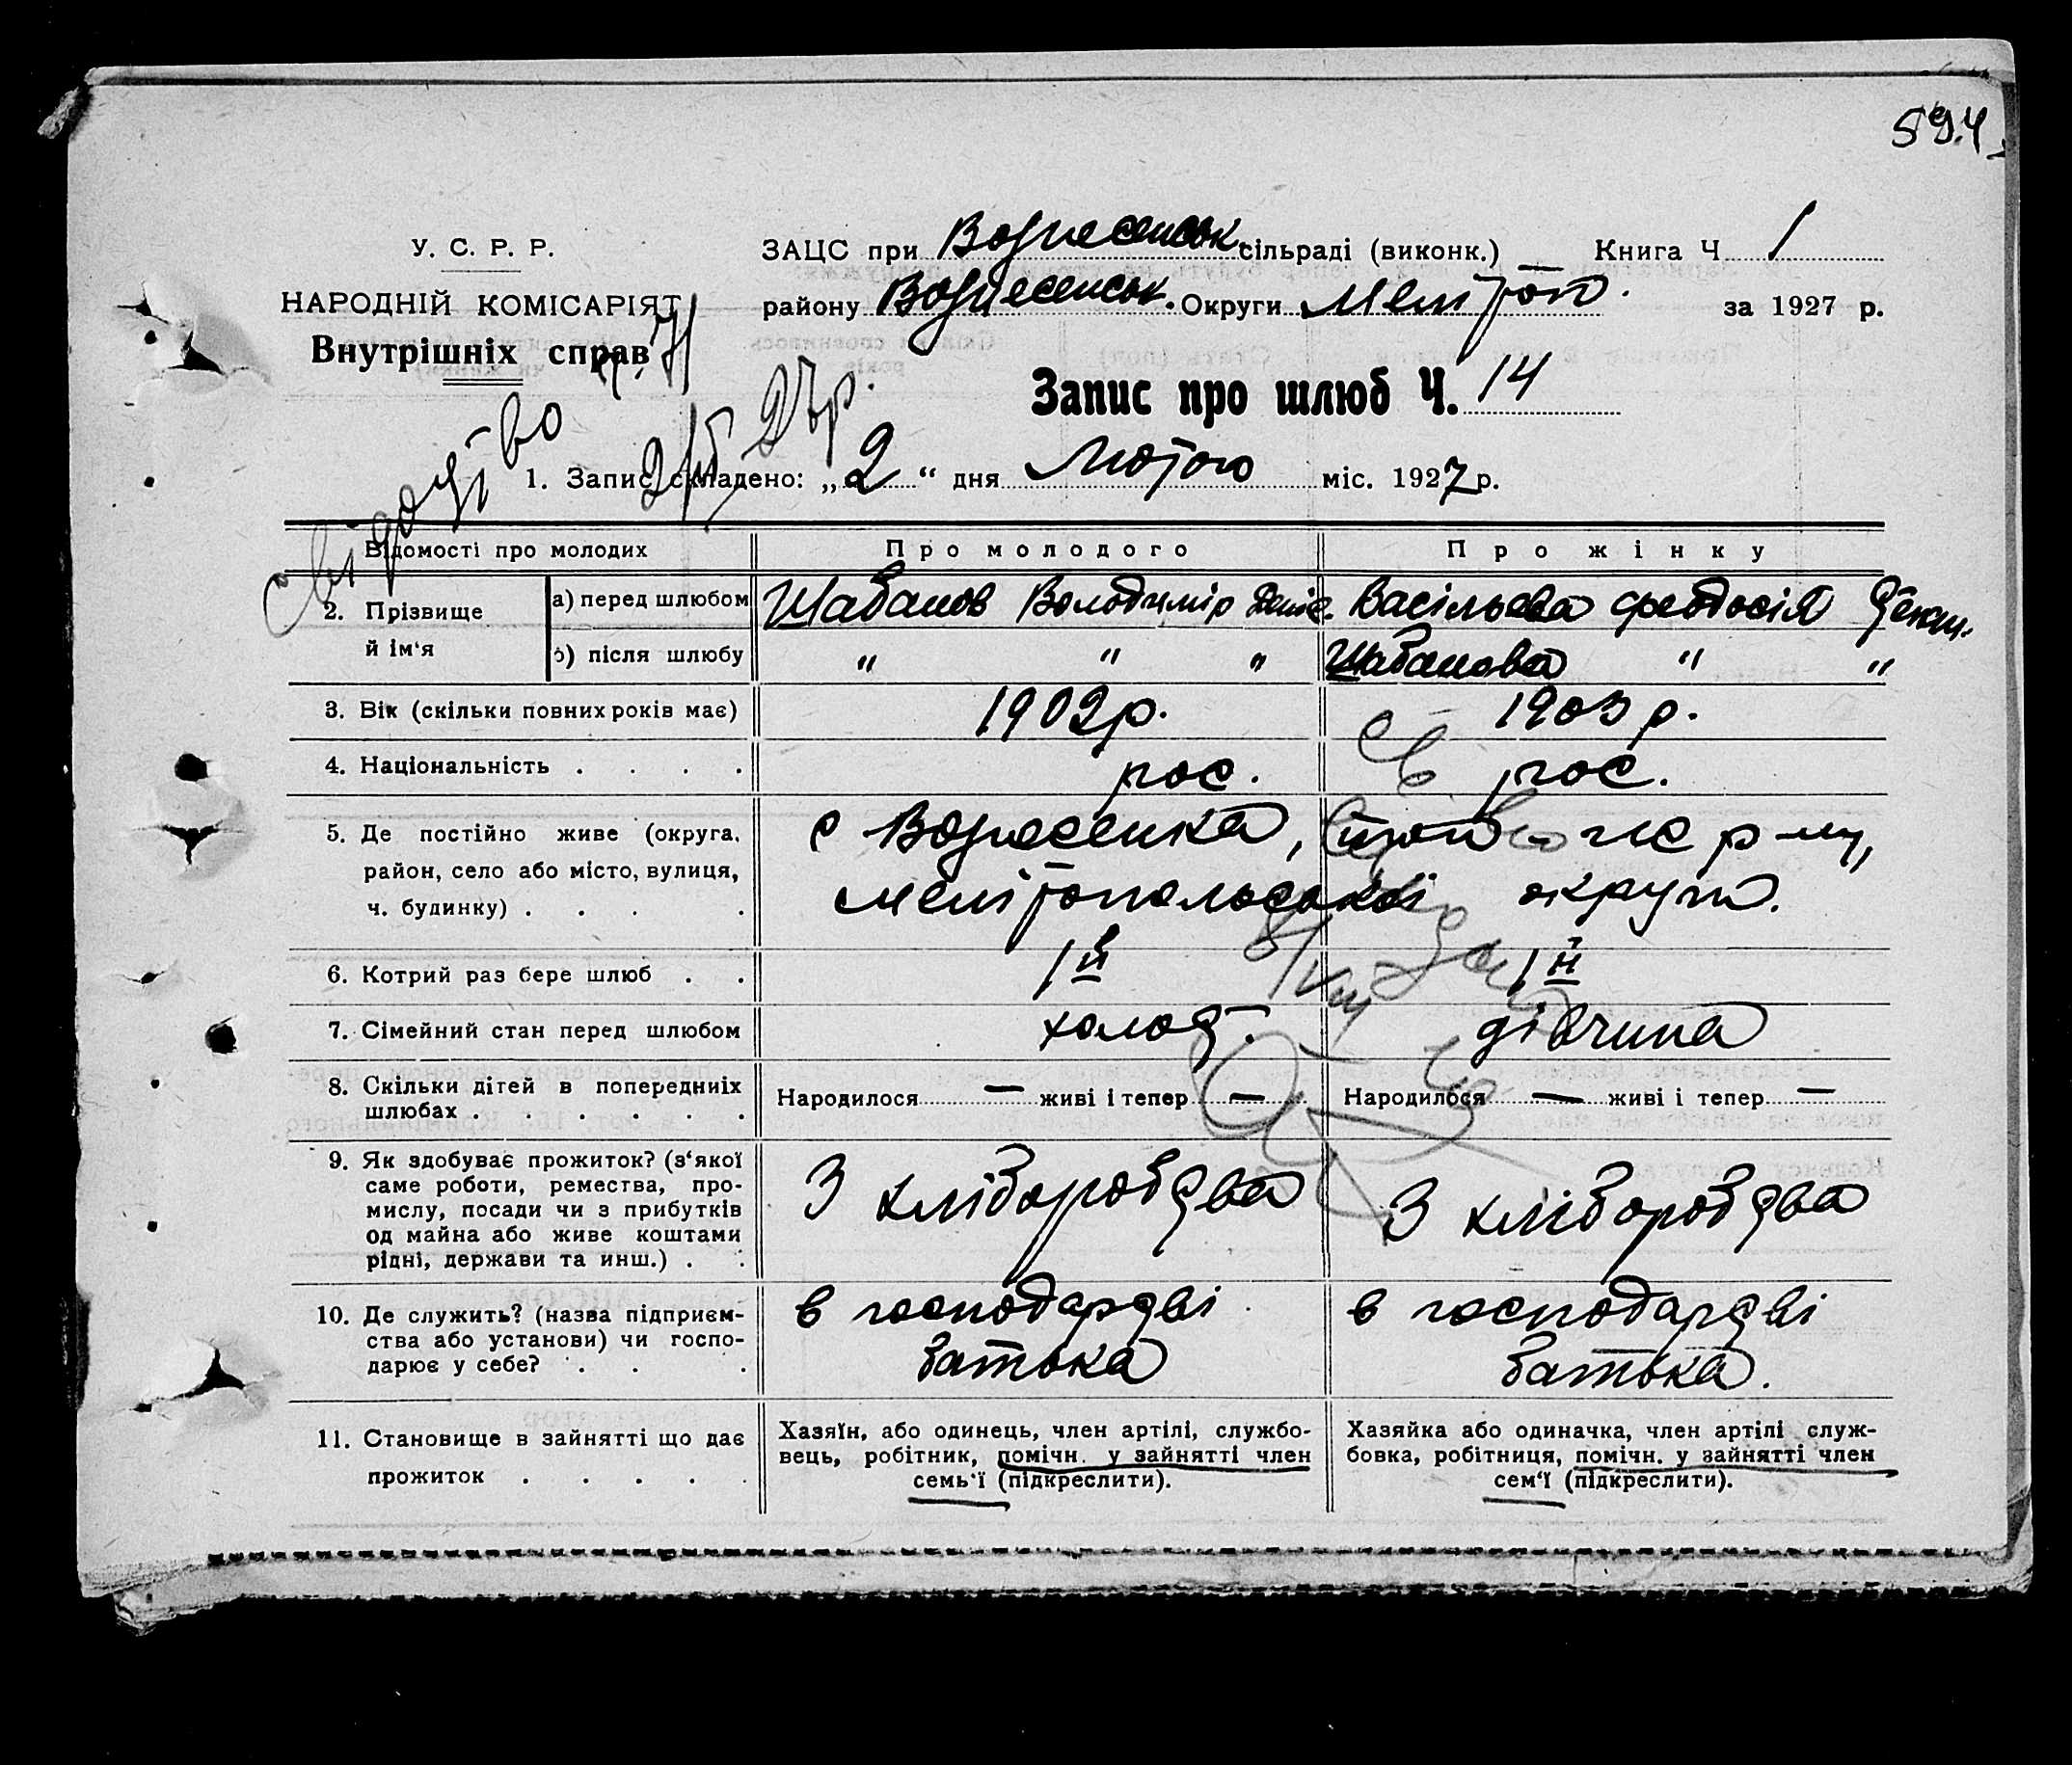 594
У. С. Р. Р.
НАРОДНІЙ КОМІСАРІЯТ
Внутрішніх справ
ЗАЦС при Вознесенськ. сільраді (виконк.) Книга Ч 1
району Вознесенськ. Округи Меліт за 1927 р.
Запис про шлюб Ч. 14
27 р.
1. Запис складено: „2“ дня Лютого міс. 1927 р.
Відомості про молодих
Про молодого
Про жінку
2. Прізвище й ім'я
а) перед шлюбом
Шабанов Володимір Денис. Васільева Феодосія
б) після шлюбу
" " " Шабанова " "
3. Вік (скільки повних років має)
1902 р. 1903 р.
4. Національність . . . .
рос. рос.
5. Де постійно живе (округа,
район, село або місто, вулиця,
ч. будинку) . . . .
с Вознесенка, р-ну,
мелітопольської округи.
6. Котрий раз бере шлюб . .
1й 1й
7. Сімейний стан перед шлюбом
холост. дівчина
8. Скільки дітей в попередниіх
шлюбах . . . . . .
Народилося — живі і тепер —
Народилося — живі і тепер —
9. Як здобуває прожиток? (з'якої
саме роботи, ремества, про-
мислу, посади чи з прибутків
од майна або живе коштами
рідні, держави та инш.) . .
З хліборобства
З хліборобства
10. Де служить? (назва підприєм-
ства або установи) чи госпо-
дарює у себе? . . .
в господарстві
батька
в господарстві
батька.
11. Становище в зайнятті що дає
прожиток . . . . .
Хазяїн, або одинець, член артілі, службо-
вець, робітник, помічн. у зайнятті член
семь'ї (підкреслити).
Хазяйка або одиначка, член артілі служ-
бовка, робітниця, помічн. у зайнятті член
сем'ї (підкреслити).